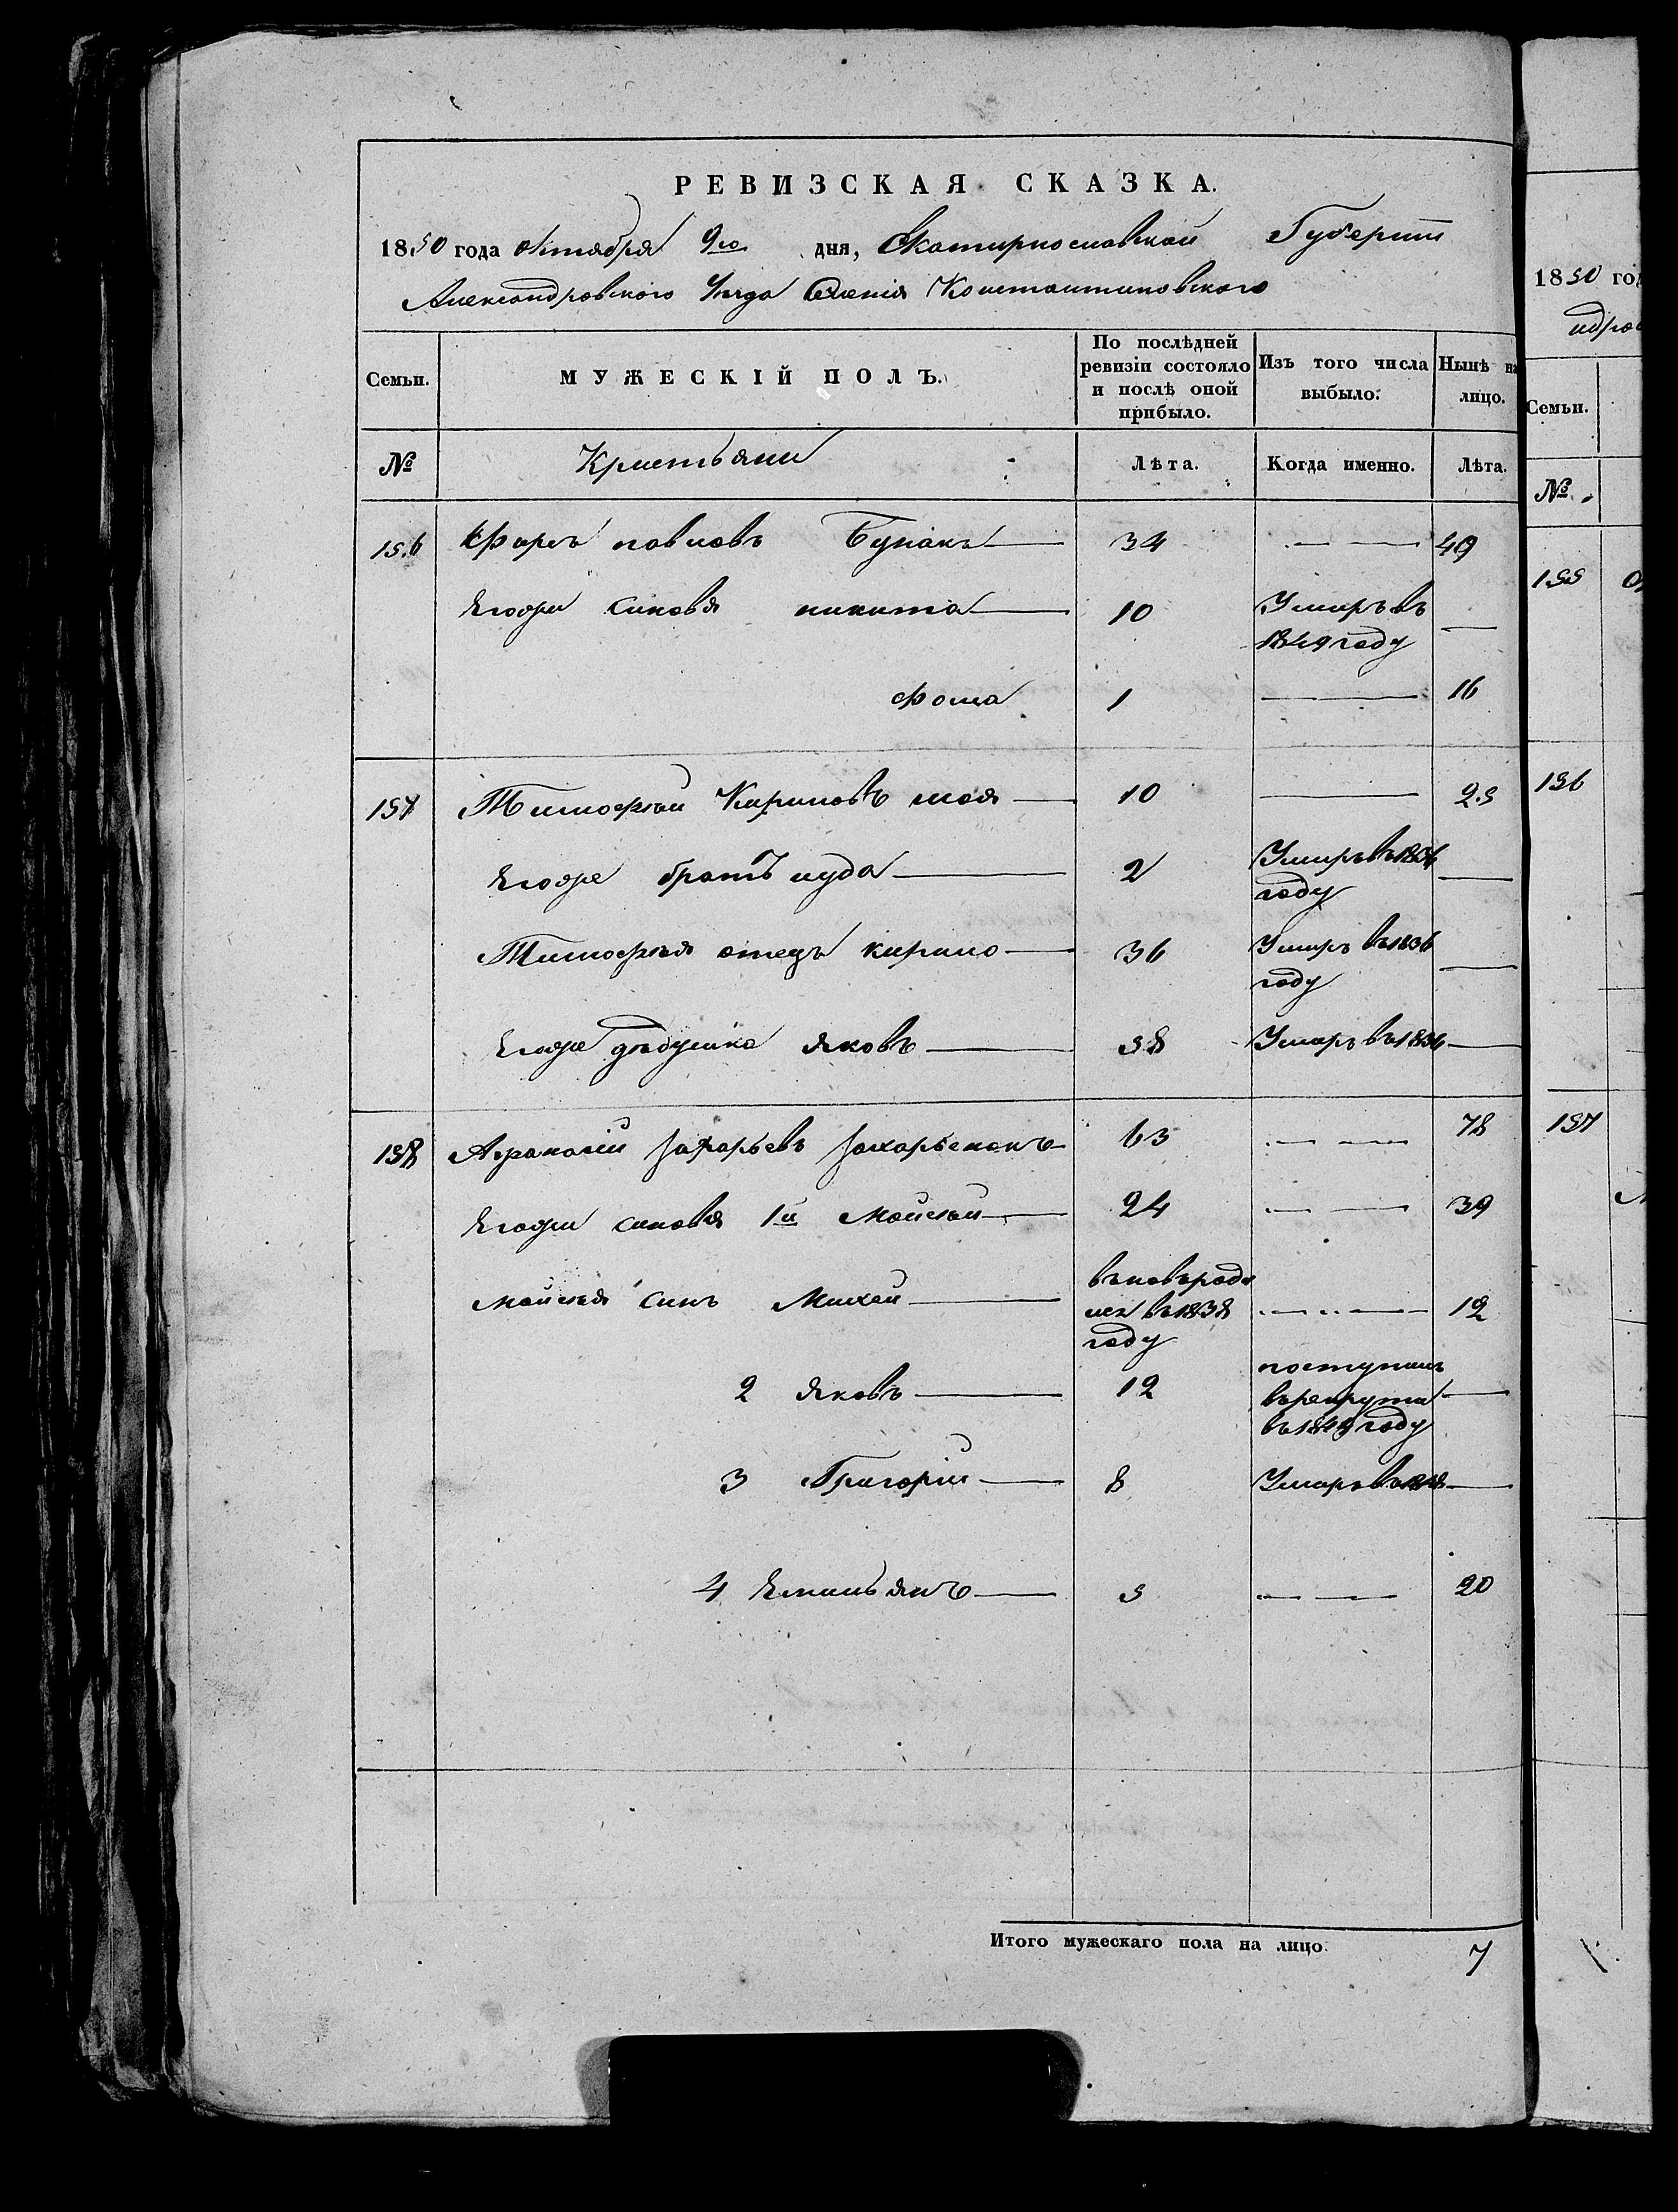 РЕВИЗСКАЯ СКАЗКА.
1850 года октября 9го дня, Екатирнославской Губернии
Александровского Уезда Селенія Константиновского
Семьи. МУЖЕСКІЙ ПОЛЪ. По послѣдней ревизіи состояло и послѣ оной прибыло. Изъ того числа выбыло. Нынѣ на лицо.
№ Кристьяни Лѣта. Когда именно. Лѣта.
156 павловъ 34 49
Егожи синовя никита 10 Умиръ въ
1849 году
Фома 1 16
157 Тимофѣй Кириловъ 10 25
Егоже братъ иуда 2 Умиръ въ 1836
году
Тимофѣя отецъ кирило 36 Умиръ въ 1836
году
Егоже дѣдушка яковъ 58 Умиръ въ 1836
158 Афанасій Захарьевъ Захарьенокъ 63 78
Егожи синовя 1й Мойсѣй 24 39
мойсѣя синъ Михей въновь роди
лся въ 1838
году 12
2 яковъ 12 поступилъ
въ рекрути
году
3 Григорій 8 Умиръ
4 Емильянъ 5 20
Итого мужескаго пола на лицо. 7
1850 год
Семьи.
№
155
156
157